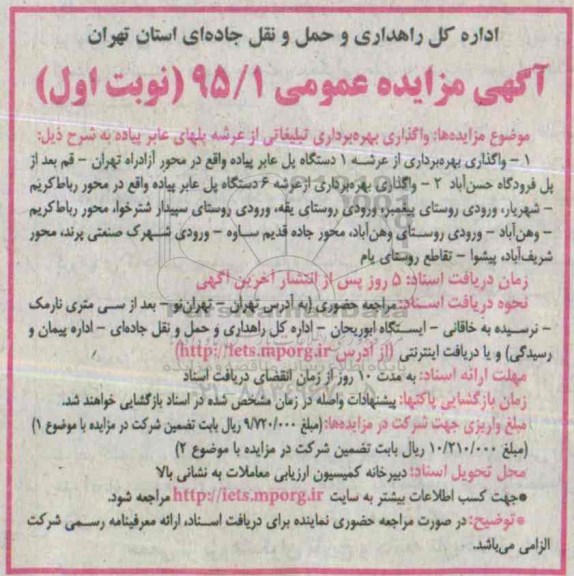 اداره کل راهداری و حمل و نقل جاده‌ای استان تهران
آگهی مزایده عمومی ۹۵/۱ (نوبت اول)
موضوع مزایده‌ها: واگذاری بهره‌برداری تبلیغاتی از عرشه پلهای عابر پیاده به شرح ذیل:
۱ – واگذاری بهره‌برداری از عرشه ۱ دستگاه پل عابر پیاده واقع در محور آزادراه تهران – قم بعد از
پل فرودگاه حسن‌آباد ۲ – واگذاری بهره‌برداری از عرشه ۶ دستگاه پل عابر پیاده واقع در محور رباط‌کریم
– شهریار، ورودی روستای پیغمبر، ورودی روستای یقه، ورودی روستای سپیدار شترخوار، محور رباط‌کریم
– وهن‌آباد – ورودی روستای وهن‌آباد، محور جاده قدیم ساوه – ورودی شهرک صنعتی پرند، محور
شریف‌آباد، پیشوا – تقاطع روستای یام
زمان دریافت اسناد: ۵ روز پس از انتشار آخرین آگهی
نحوه دریافت اسناد: مراجعه حضوری (به آدرس تهران – تهران‌نو – بعد از سی متری نارمک
– نرسیده به خاقانی – ایستگاه ابوریحان – اداره کل راهداری و حمل و نقل جاده‌ای – اداره پیمان و
رسیدگی) و یا دریافت اینترنتی (از آدرس http://iets.mporg.ir)
مهلت ارائه اسناد: به مدت ۱۰ روز از زمان انقضای دریافت اسناد
زمان بازگشایی پاکتها: پیشنهادات واصله در زمان مشخص شده در اسناد بازگشایی خواهند شد.
مبلغ واریزی جهت شرکت در مزایده‌ها: (مبلغ ۹/۷۲۰/۰۰۰ ریال بابت تضمین شرکت در مزایده با موضوع ۱)
(مبلغ ۱۰/۲۱۰/۰۰۰ ریال بابت تضمین شرکت در مزایده با موضوع ۲)
محل تحویل اسناد: دبیرخانه کمیسیون ارزیابی معاملات به نشانی بالا
●جهت کسب اطلاعات بیشتر به سایت http://iets.mporg.ir مراجعه شود.
●توضیح: در صورت مراجعه حضوری نماینده برای دریافت اسناد، ارائه معرفینامه رسمی شرکت
الزامی می‌باشد.